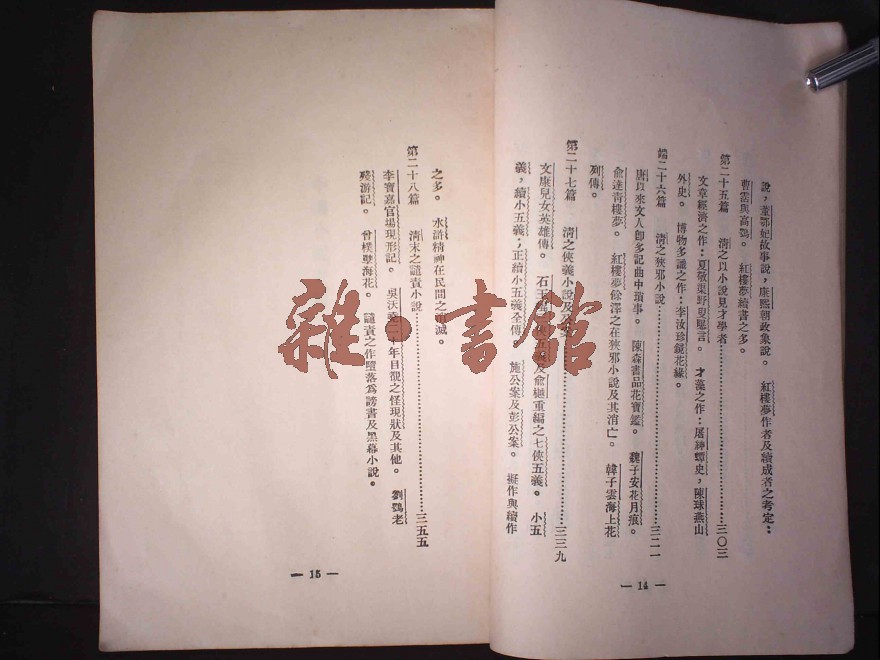 說，董鄂妃故事說，康熙朝政象說。　紅樓夢作者及續成者之考定：
曹霑與高鶚。　紅樓夢續書之多。
第二十五篇　清之以小說見才學者……三〇三
文章經濟之作：夏敬渠野叟曝言。　才藻之作：屠紳蟫史，陳球燕山
外史。　博物多識之作：李汝珍鏡花緣。
第二十六篇　清之狹邪小說……三二一
唐以來文人即多記曲中瑣事。　陳森書品花寶鑑。　魏子安花月痕。
兪達靑樓夢。　紅樓夢餘澤之在狹邪小說及其消亡。　韓子雲海上花
列傳。
第二十七篇　清之俠義小說及……三三九
文康兒女英雄傳。　石玉俠五義及兪樾重編之七俠五義。　小五
義，續小五義；正續小五義全傳　施公案及彭公案。　擬作與續作
— 14 —
之多。　水滸精神在民間之滅。
第二十八篇　清末之譴責小說……三五五
李寶嘉官場現形記。　吳沃十年目覩之怪現狀及其他。　劉鶚老
殘游記。　曾樸孽海花。　譴責之作墮落爲謗書及黑幕小說。
— 15 —
雜·書館